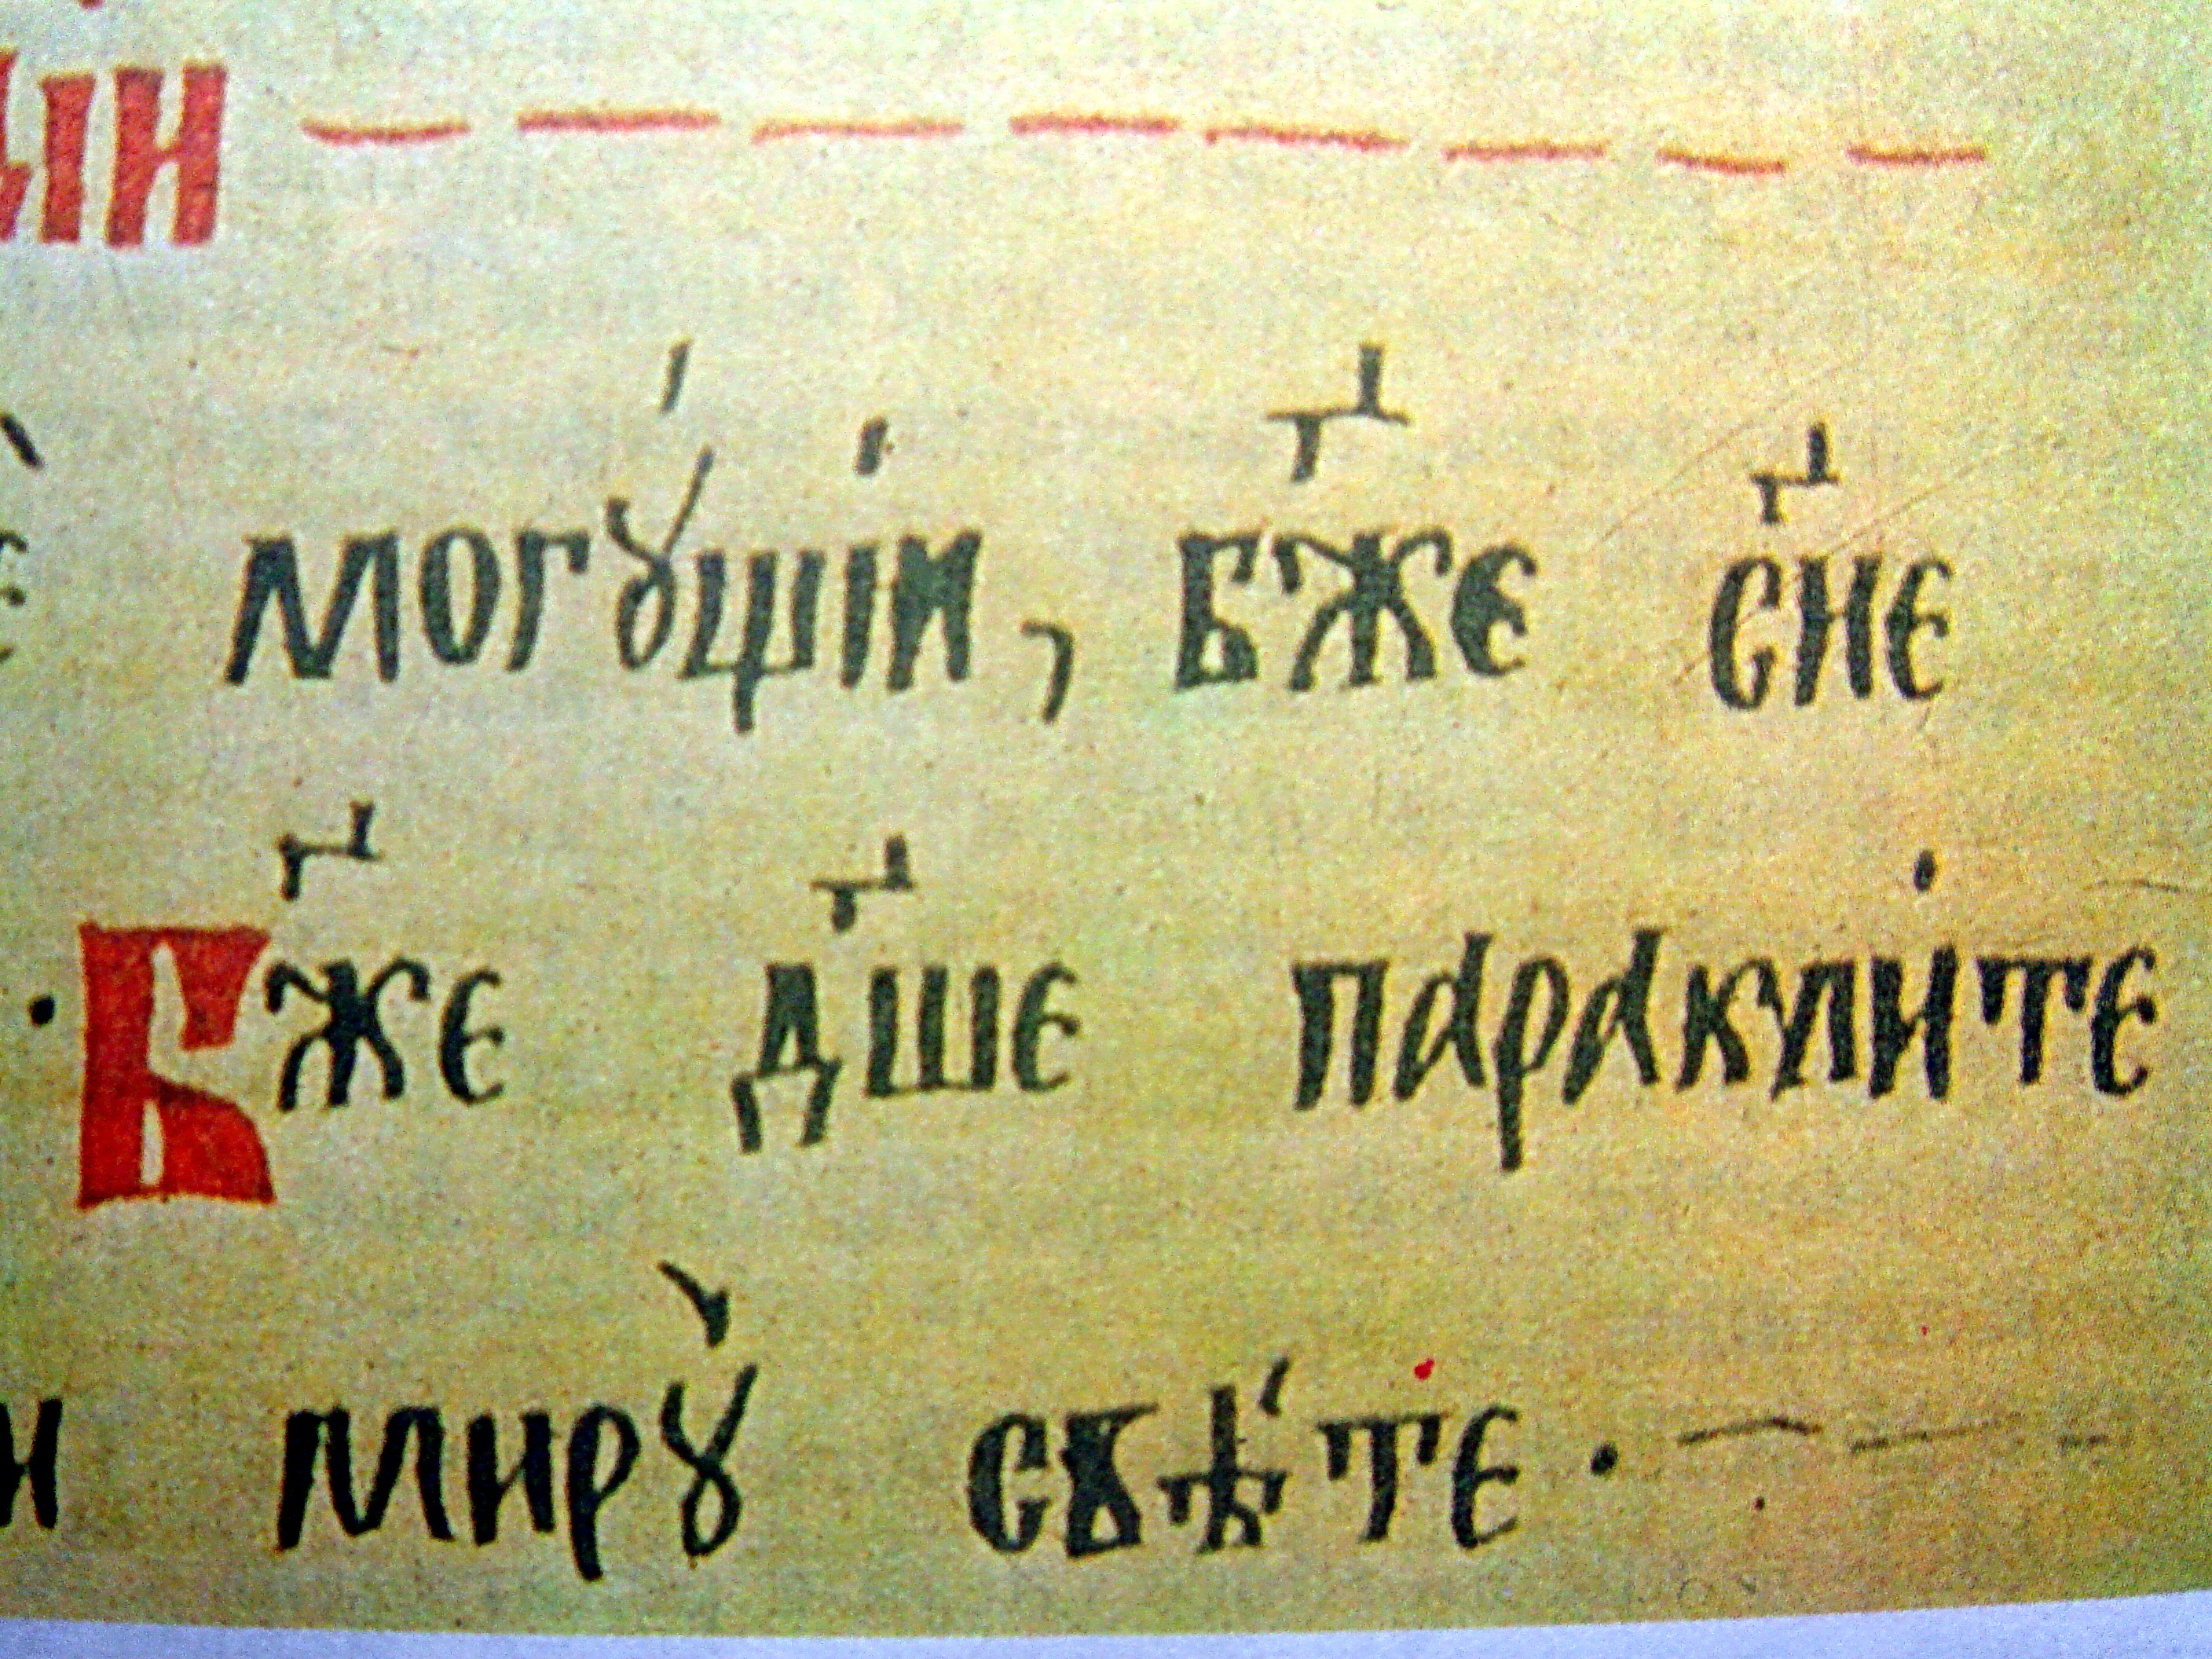 могꙋ́щїи, бж҃е сн҃е
· Бж҃е дш҃е паракли́те
мирꙋ̀ свѣ́те ·